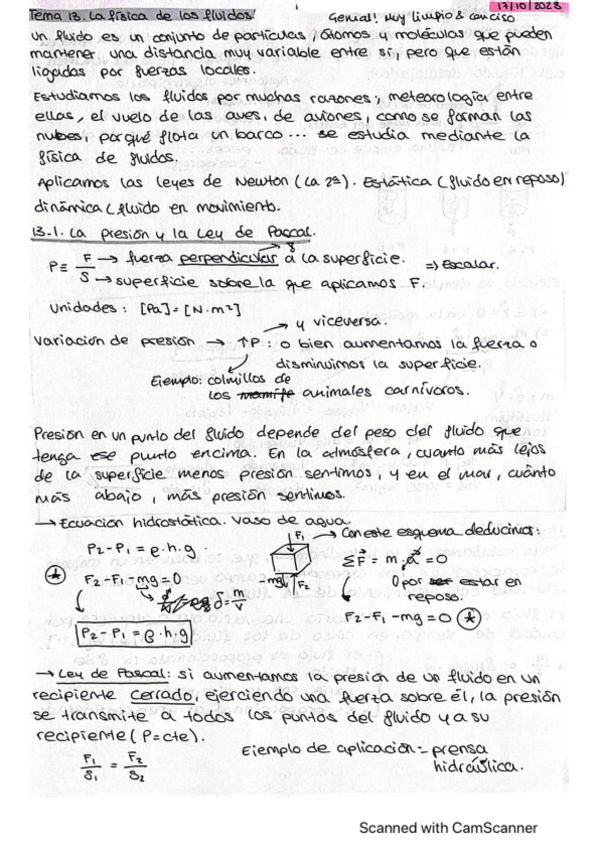 Tema 13. La física de los fluidos.
Genial! Muy limpio & conciso
17/10/2023
Un fluido es un conjunto de partículas, átomos y moléculas que pueden
mantener una distancia muy variable entre sí, pero que están
ligadas por fuerzas locales.
Estudiamos los fluidos por muchas razones; meteorología entre
ellas, el vuelo de las aves, de aviones, como se forman las
nubes, porqué flota un barco... se estudia mediante la
física de fluidos.
Aplicamos las leyes de Newton (la 2ª). Estática (fluido en reposo)
dinámica (fluido en movimiento.
13.1. La presión y la Ley de Pascal.
P ≡ F/S → fuerza perpendicular a la superficie. ⇒ Escalar.
→ superficie sobre la que aplicamos F.
Unidades: [Pa] = [N·m²]
→ y viceversa.
Variación de presión → ↑P: o bien aumentamos la fuerza o
disminuimos la superficie.
Ejemplo: colmillos de
los animales carnívoros.
Presión en un punto del fluido depende del peso del fluido que
tenga ese punto encima. En la atmósfera, cuanto más lejos
de la superficie menos presión sentimos, y en el mar, cuánto
más abajo, más presión sentimos.
→ Ecuación hidrostática. Vaso de agua.
P2 - P1 = ρ·h·g.
F1
-mg
F2
→ Con este esquema deducimos:
ΣF = m·a = 0
0 por estar en
reposo.
F2 - F1 - mg = 0 *
* F2 - F1 - mg = 0
δ = m/v
P2 - P1 = ρ·h·g
→ Ley de Pascal: si aumentamos la presión de un fluido en un
recipiente cerrado, ejerciendo una fuerza sobre él, la presión
se transmite a todos los puntos del fluido y a su
recipiente (P = cte).
F1/S1 = F2/S2
Ejemplo de aplicación = prensa
hidráulica.
Scanned with CamScanner